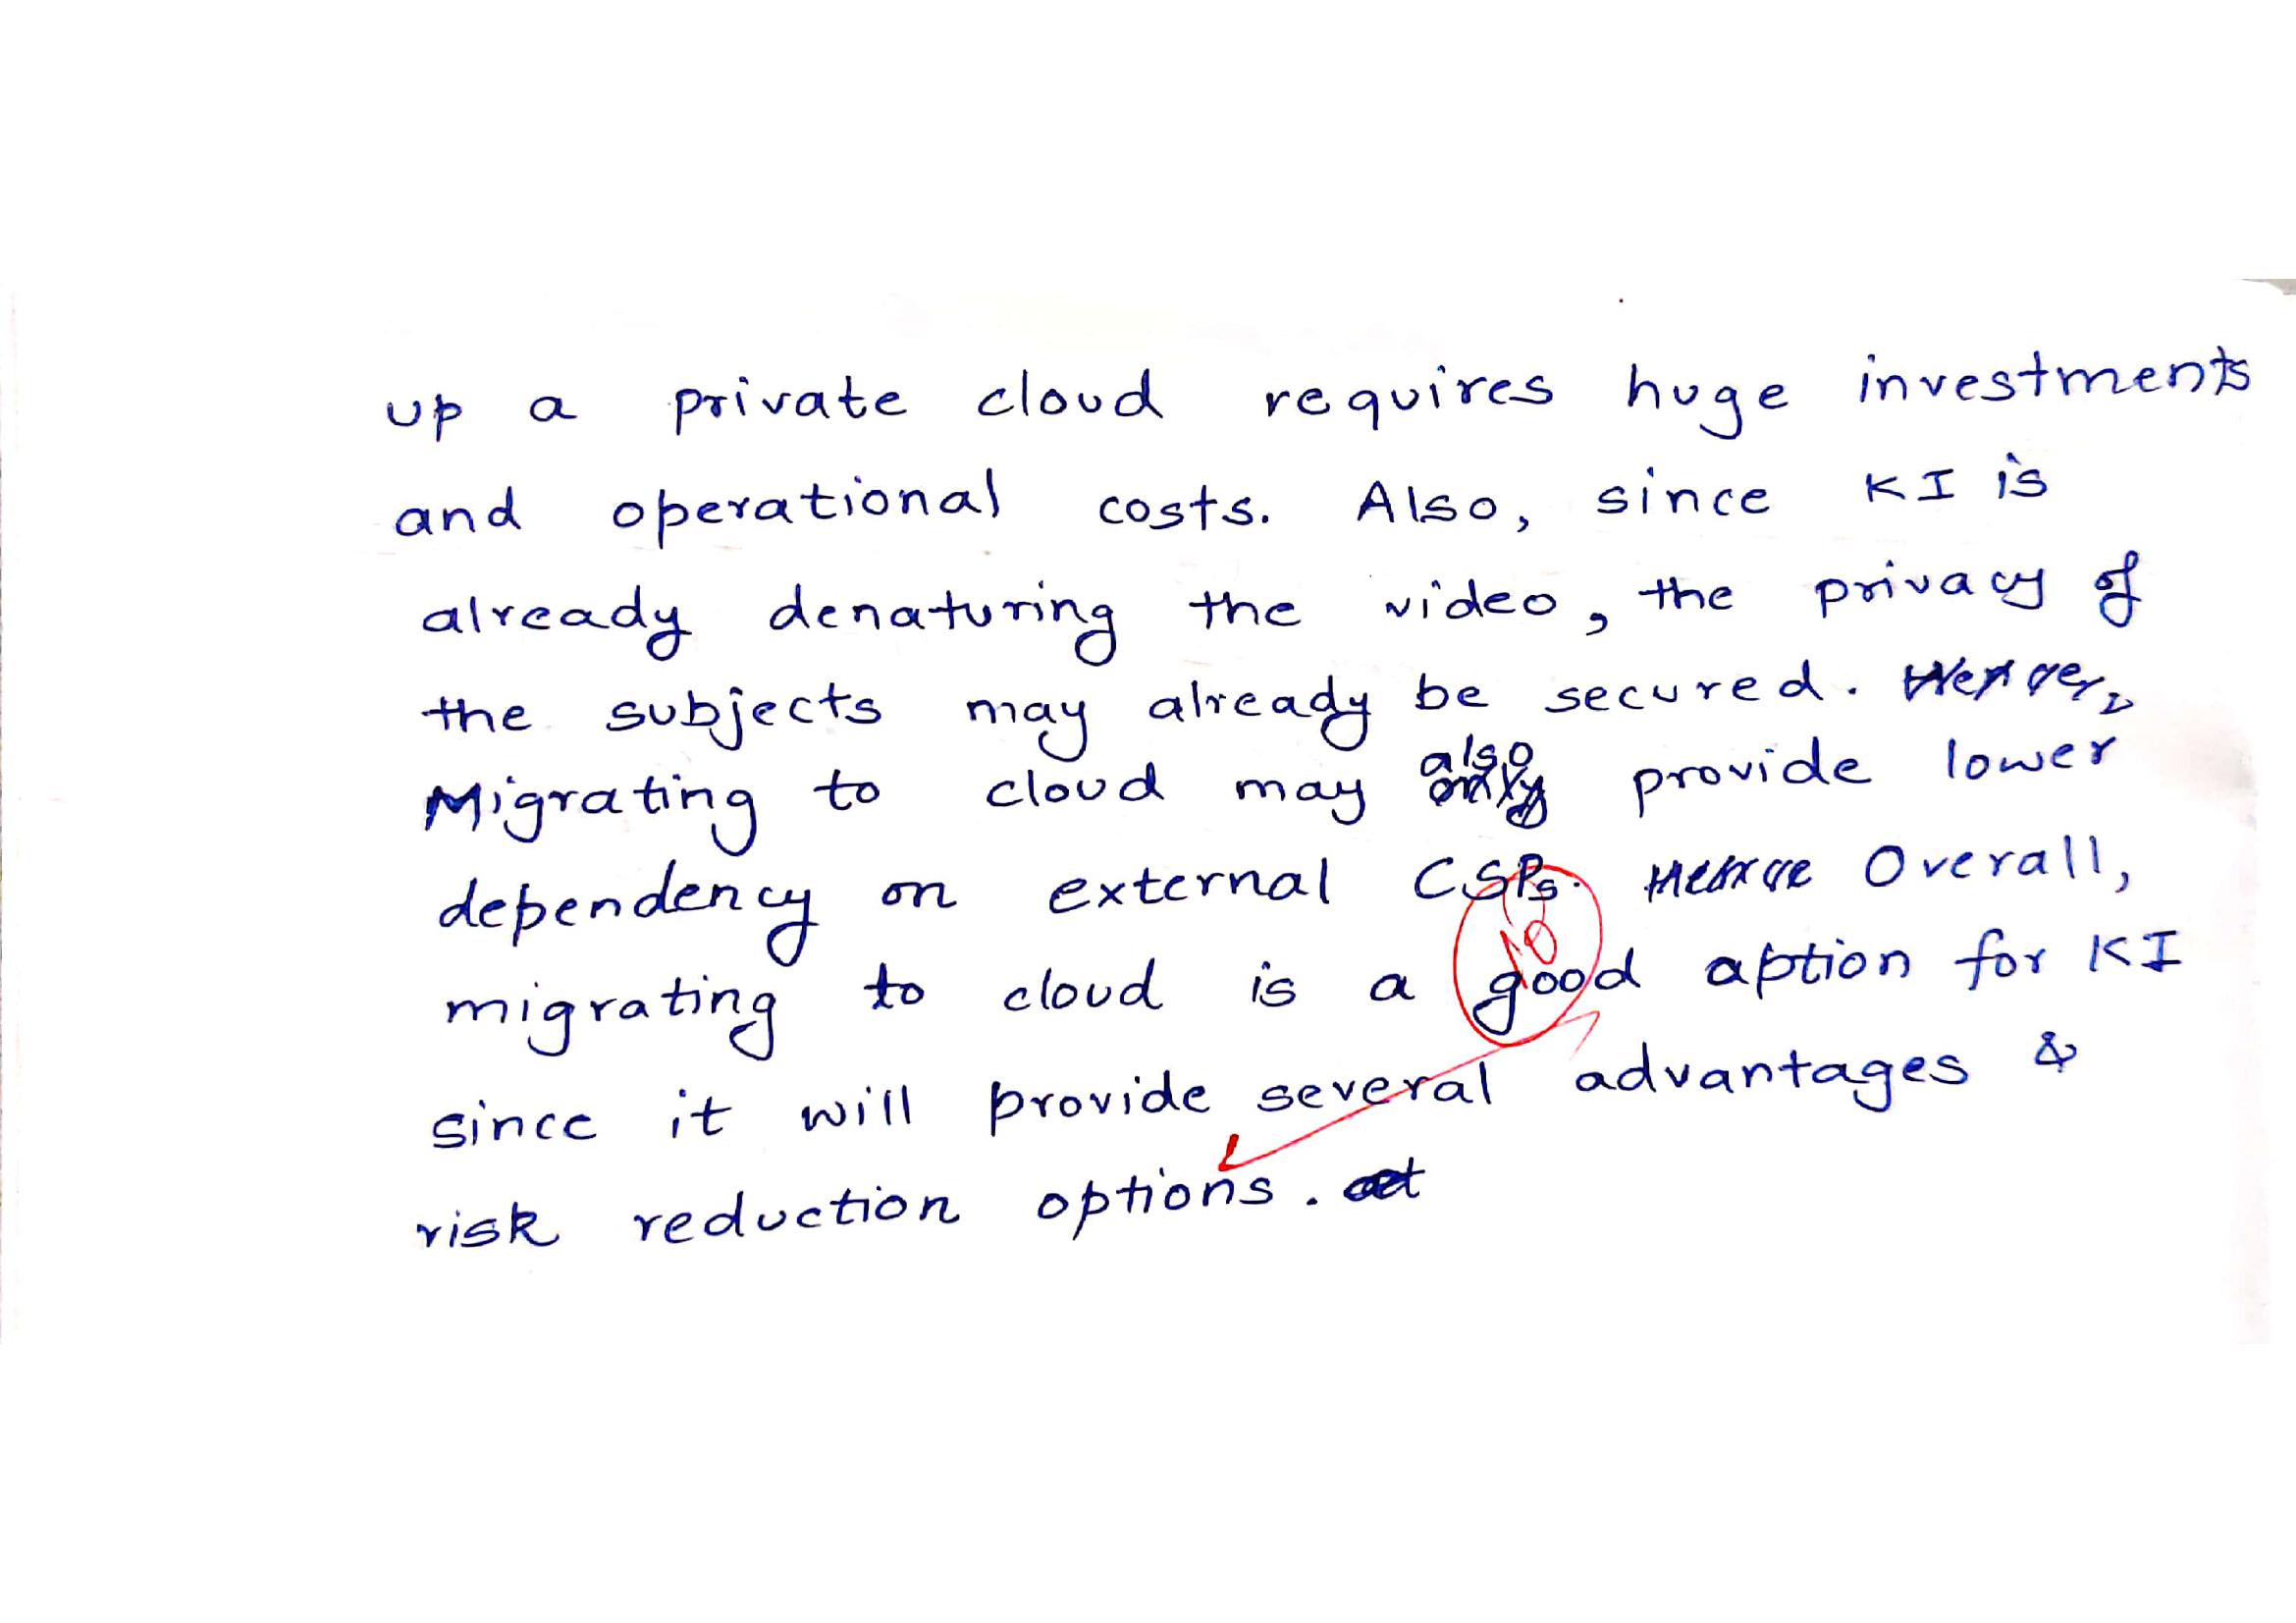 up a private cloud requires huge investments
and operational costs. Also, since KI is
already denaturing the video, the privacy of
the subjects may already be secured.
also
Migrating to cloud may only provide lower
dependency on external CSPs. Overall,
migrating to cloud is a good aption for KI
since it will provide several advantages &
risk reduction options.